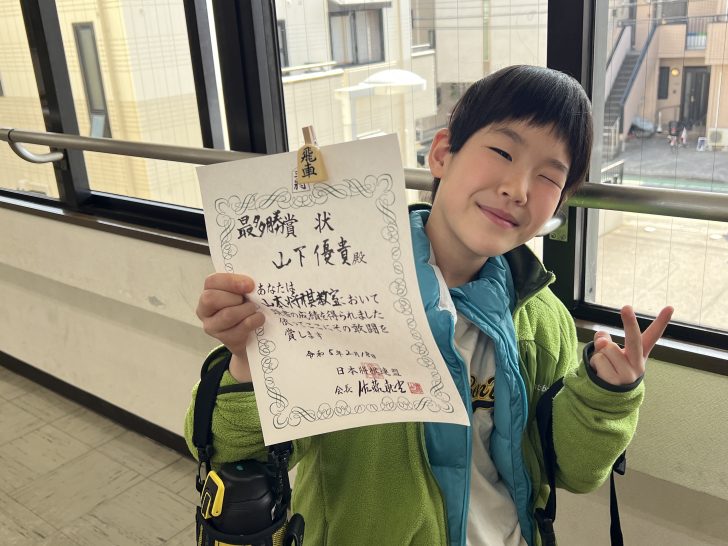 飛車
最多勝賞状
山下優貴殿
あなたは
山本将棋教室において
抜群の成績を得られました
依ってここにその敢闘を
賞します
令和5年2月18日
日本将棋連盟
会長 佐藤康光